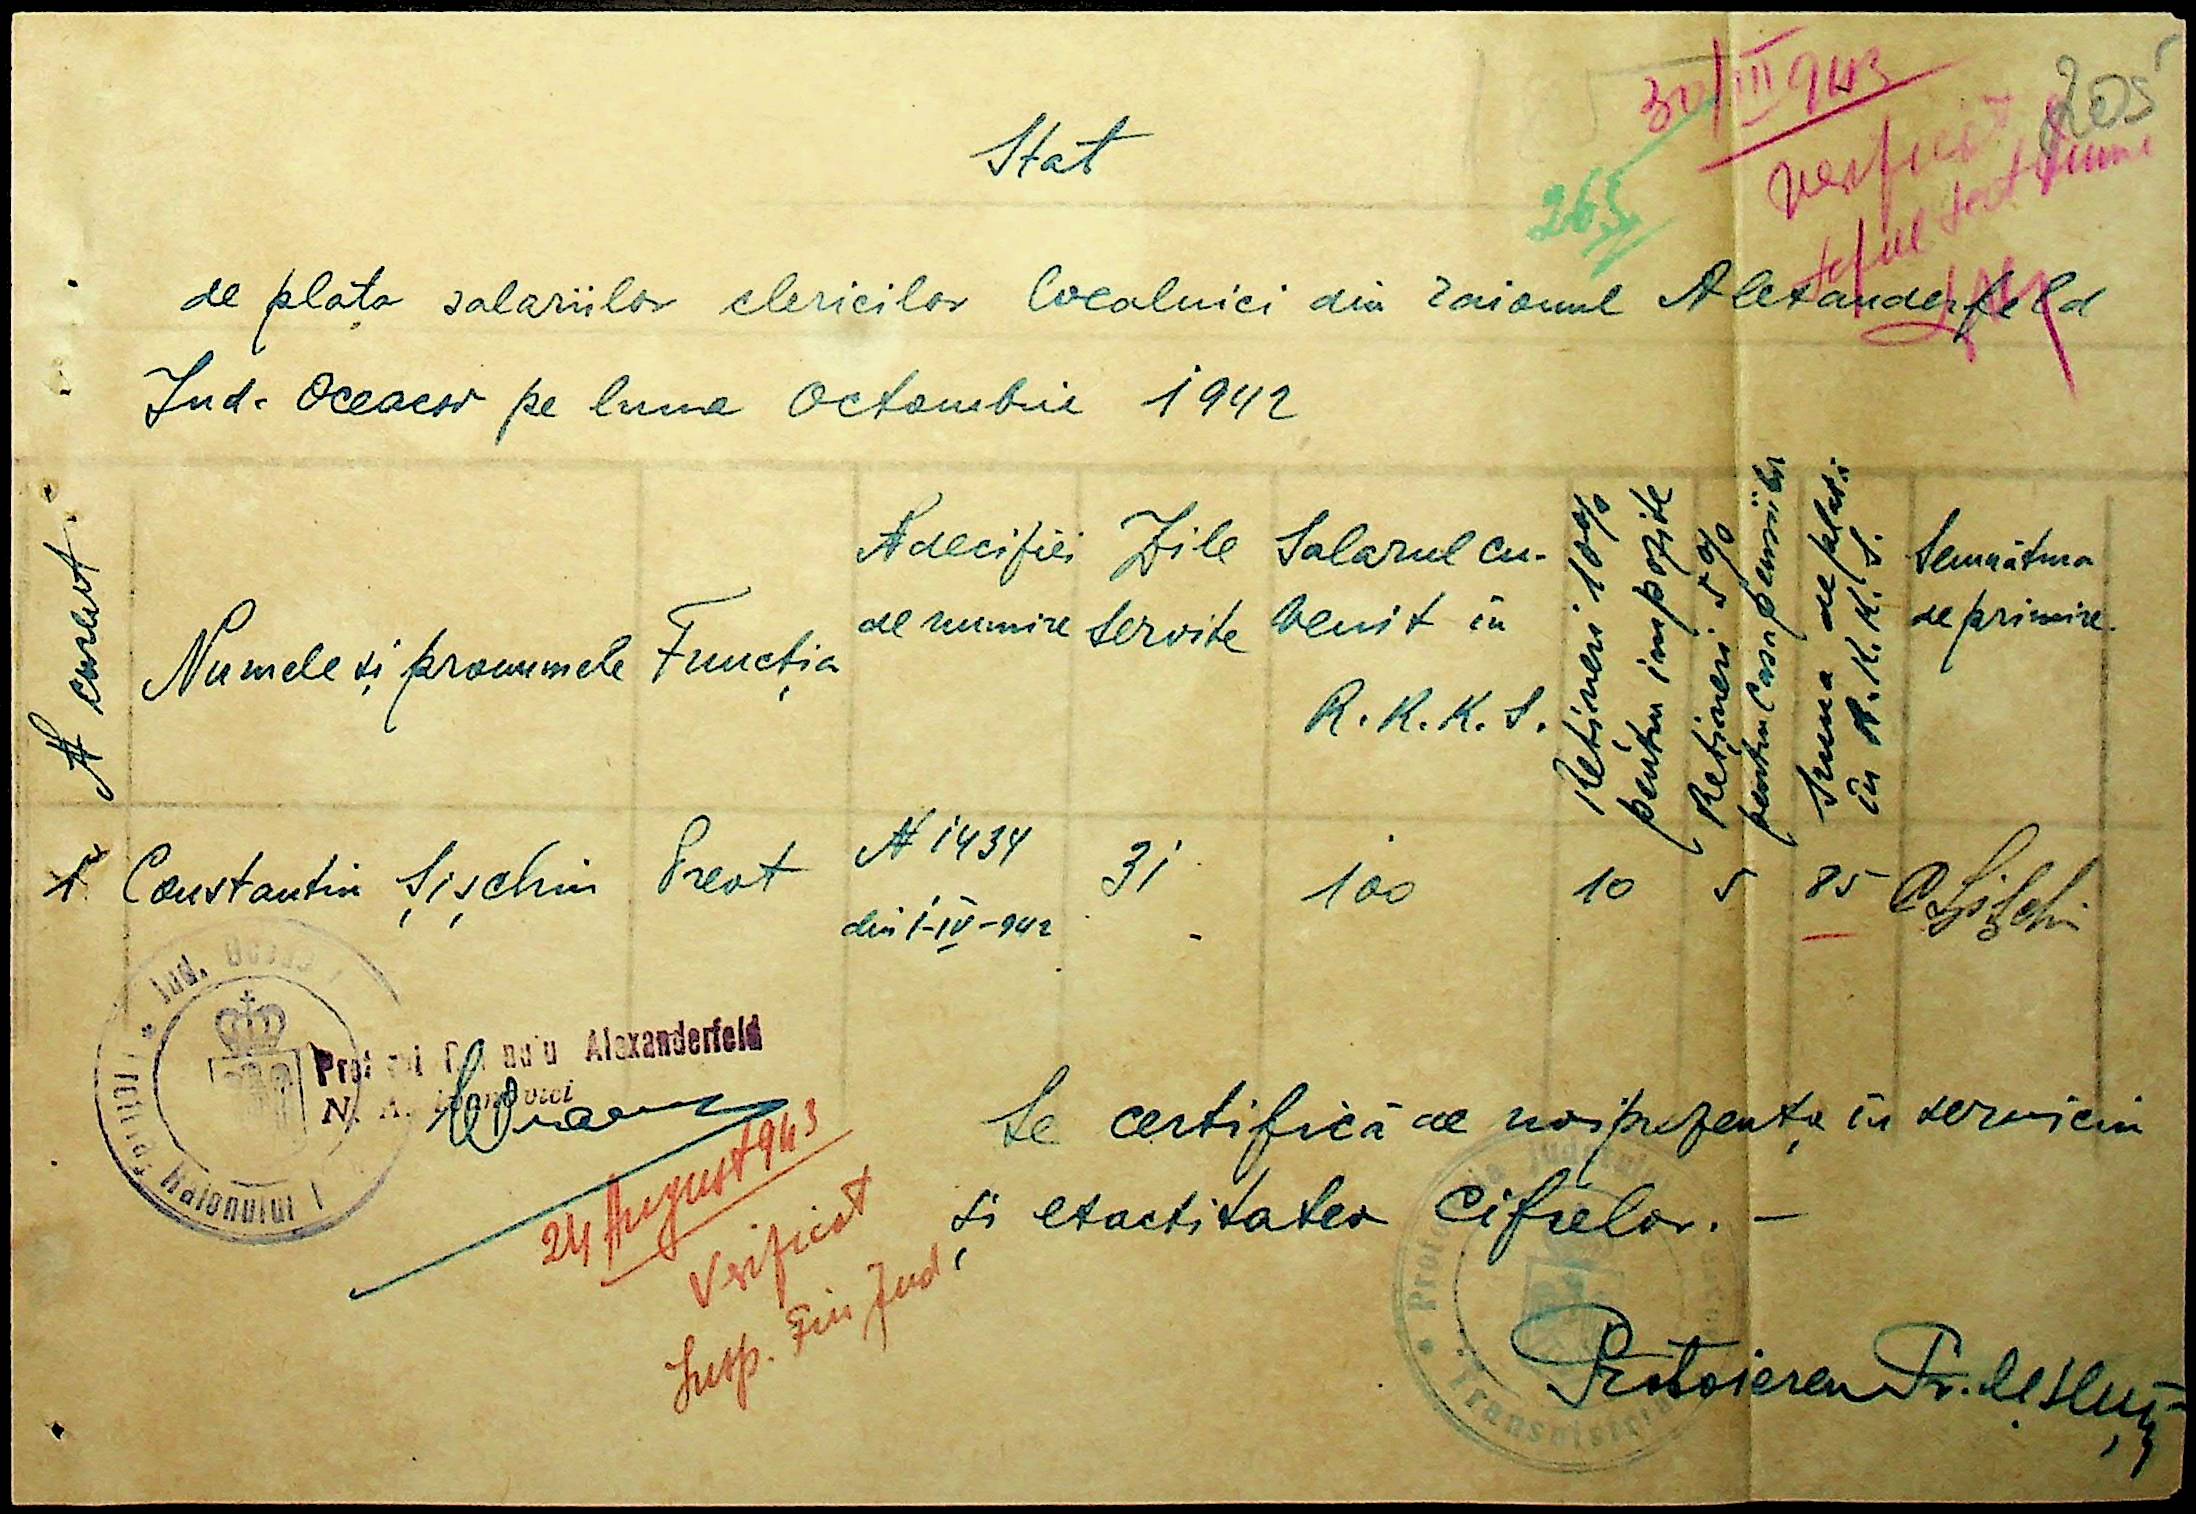 205
30/III 943
265
Verificat
Șeful
Stat
de plata salariilor clericilor localnici din raionul Alexanderfeld
Jud. Oceacov pe luna Octombrie 1942
N curent
Numele și pronumele
Funcția
N deciziei
de numire
Zile
servite
Salarul cu-
venit în
R.K.K.S.
Rețineri 10%
pentru impozite
Rețineri 5%
pentru Casa pensiilor
Suma de plată
în R.K.K.S.
Semnătura
de primire.
1 Constantin Șișchin Preot N 1434 31 100 10 5 85 C Șișchin
din 1-IV-942
Jud.
Raionului
Alexanderfeld
N. A.
24 August 943
Verificat
Insp. Fin Jud
Se certifică de noi prezența în serviciu
și exactitatea cifrelor. —
Transnistria
Protoiereu